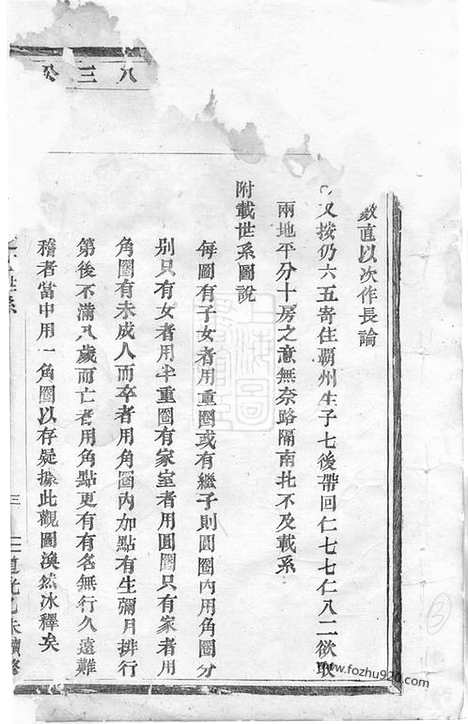 數直以次作長論
又按仍六五寄住覇州生子七後帶回仁七七仁八二欲取
兩地平分十房之意無奈路隔南北不及載系
附載世系圖說
每圖有子女者用重圈或有繼子則圓圈內用角圈分
别只有女者用半重圈有家室者用圓圈只有家者用
角圈有未成人而卒者用角圈內加點有生彌月排行
第後不滿八歲而亡者用角點更有有名無行久遠難
稽者當中用一角圈以存疑據此觀圖渙然冰釋矣
世系
三
未續修
八三公
www.fozhu920.com